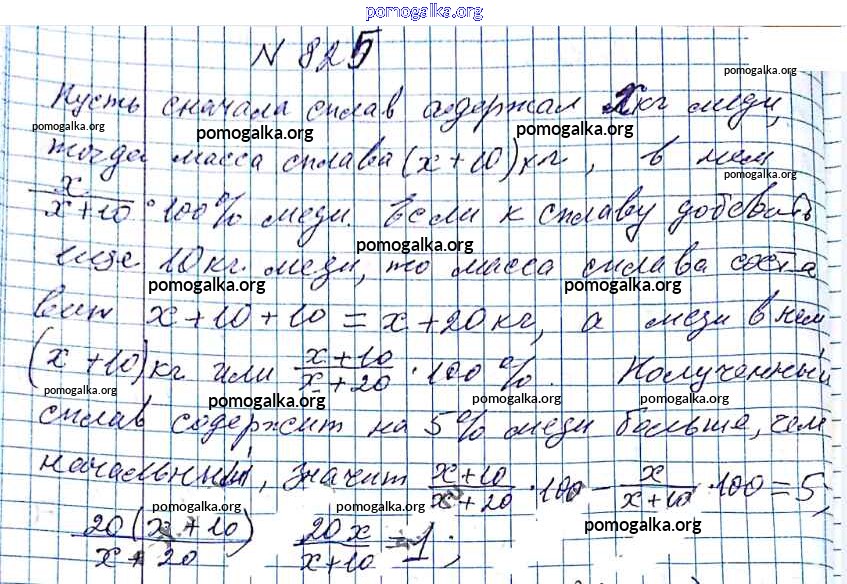 pomogalka.org
N 825
pomogalka.org
Пусть сначала сплав содержал x кг меди,
pomogalka.org pomogalka.org pomogalka.org
тогда масса сплава (x+10) кг, в нем
pomogalka.org
x/(x+10) · 100% меди. Если к сплаву добавить
pomogalka.org
еще 10 кг. меди, то масса сплава соста
pomogalka.org pomogalka.org
вит x+10+10 = x+20 кг, а меди в нем
(x+10) кг или (x+10)/(x+20) · 100 %. Полученный
pomogalka.org pomogalka.org pomogalka.org pomogalka.org
сплав содержит на 5% меди больше, чем
начальный, значит (x+10)/(x+20) · 100 - x/(x+10) · 100 = 5,
pomogalka.org pomogalka.org
20(x+10)/(x+20) 20x/(x+10) = 1;